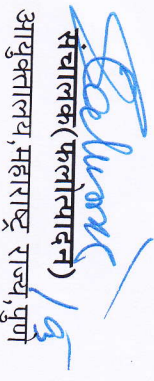 संचालक(फलोत्पादन)
आयुक्तालय,महाराष्ट्र राज्य,पुणे